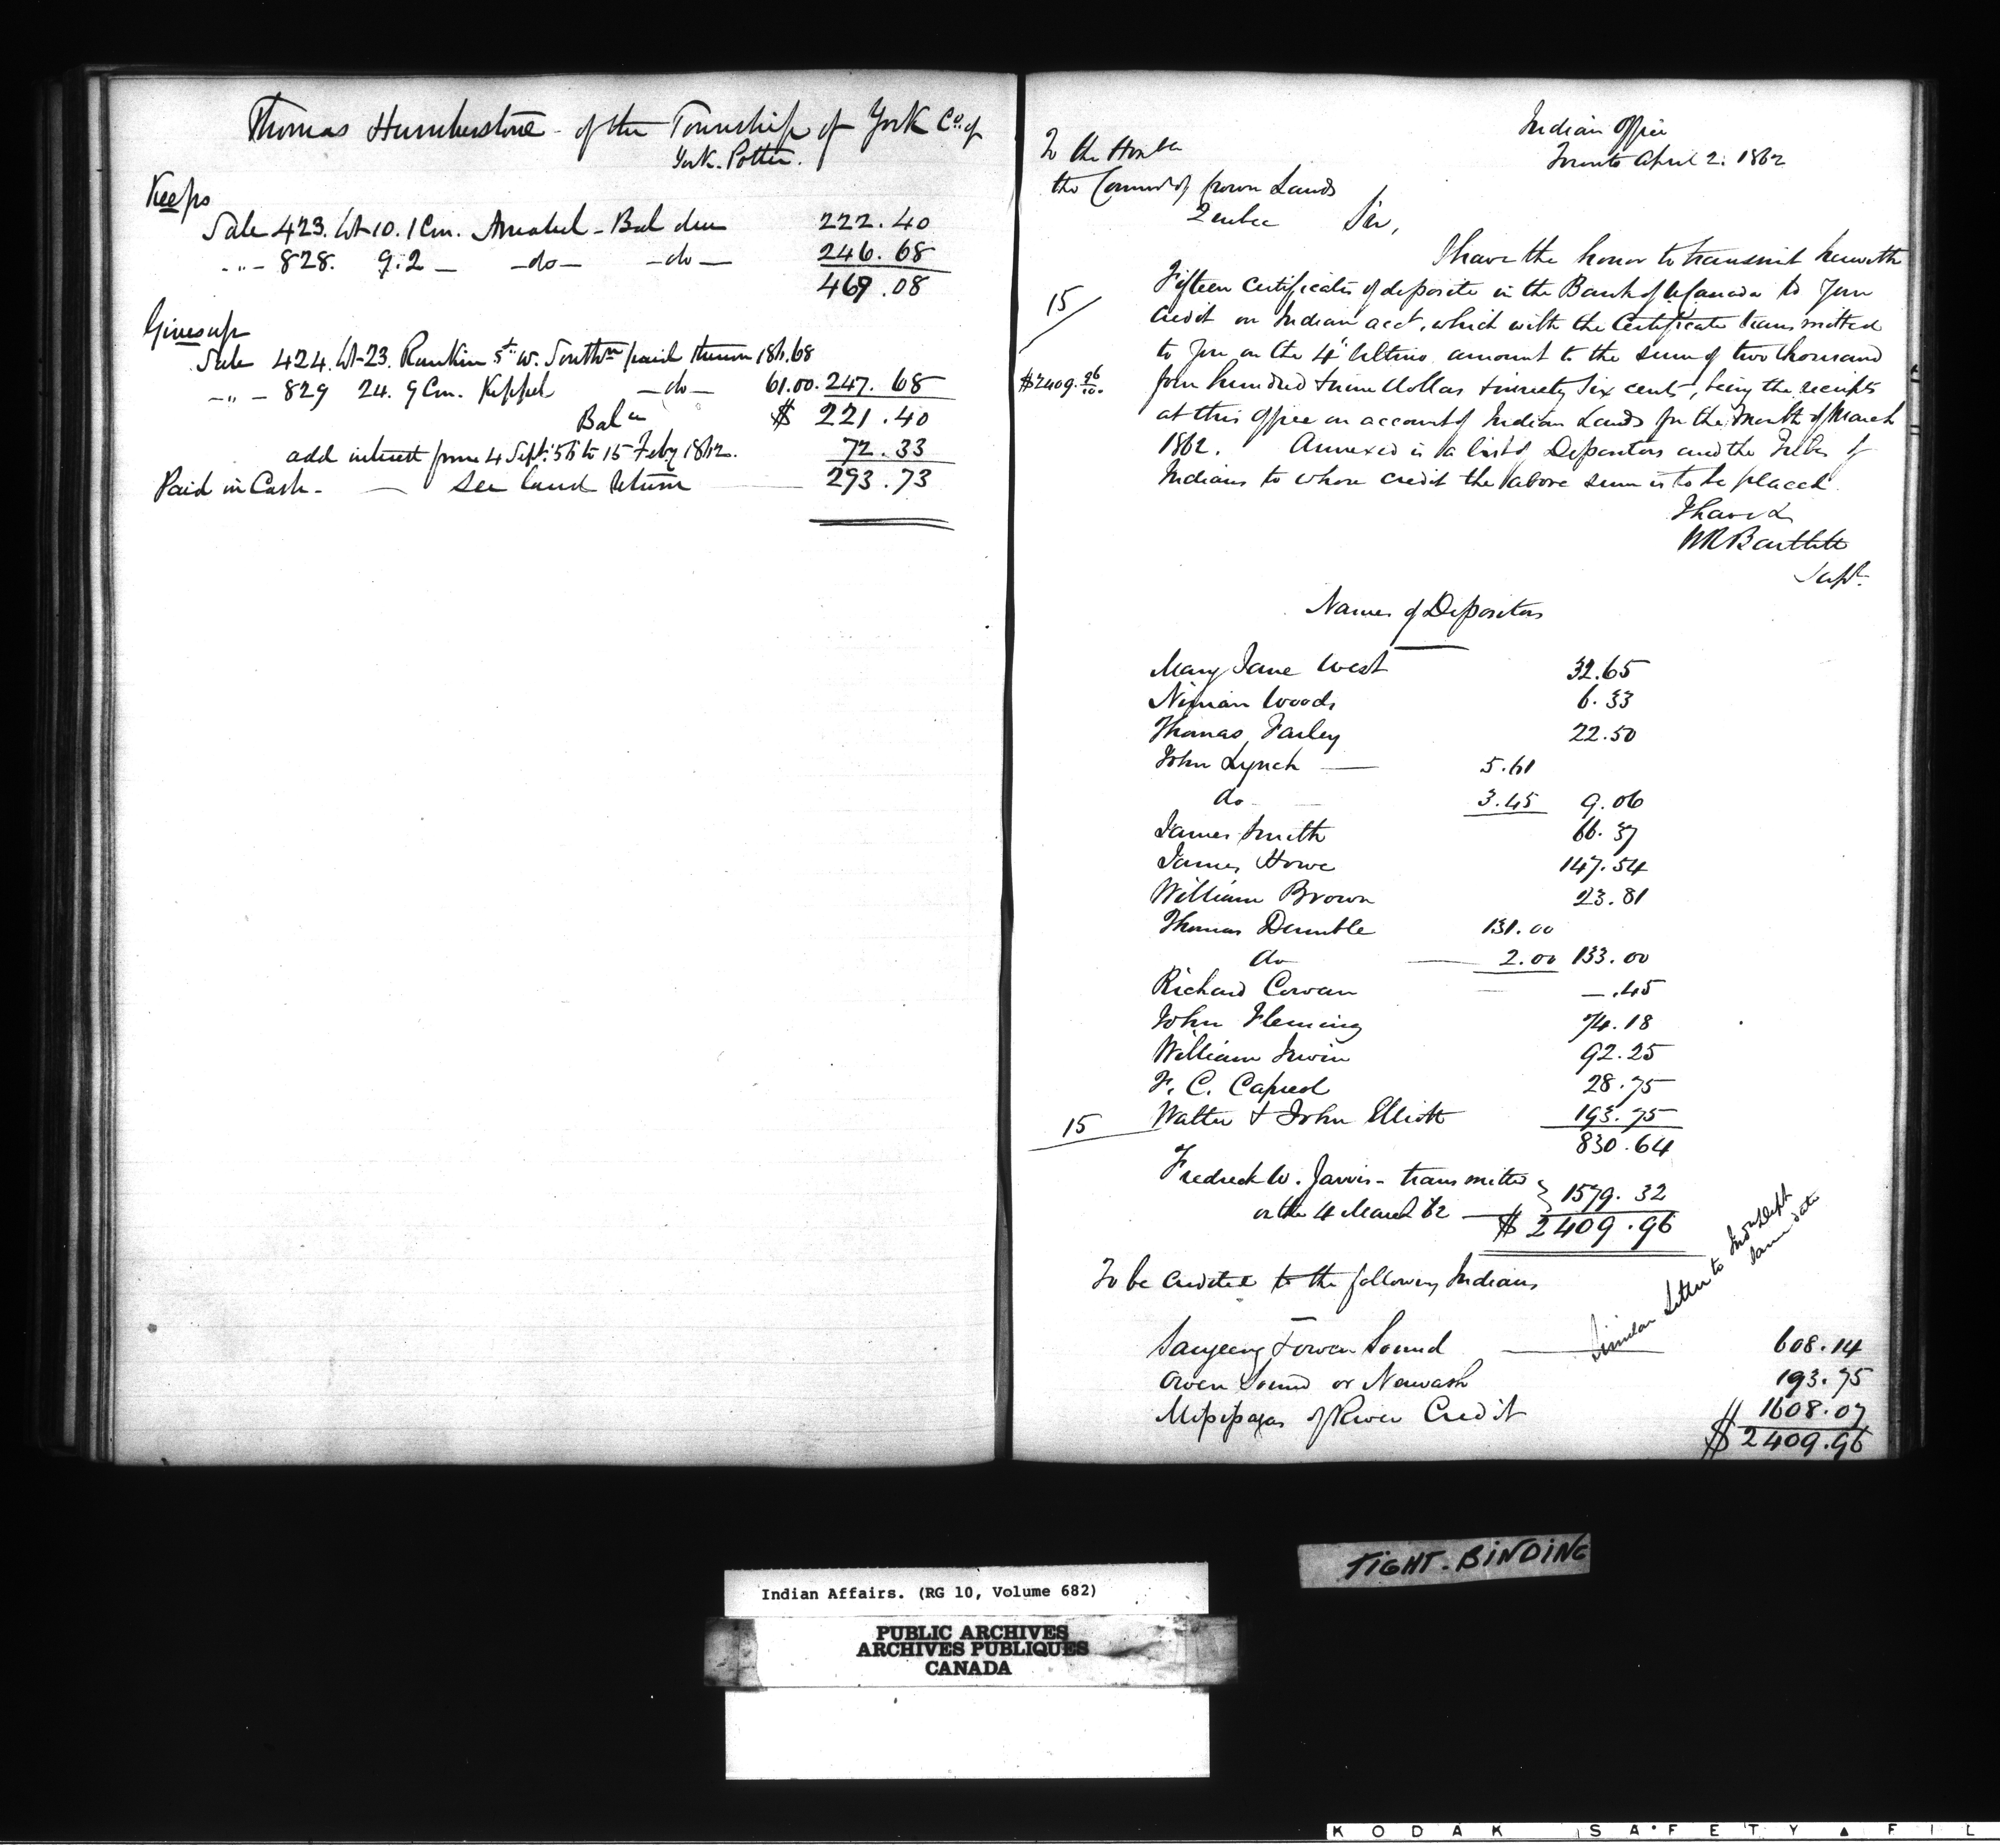 Thomas Humberstone - of the Township of York Co. of
York. Potter.
Keeps
Sale 423. Lot 10. 1 Con. Amabel - Bal due 222.40
-"- 828. 9.2 - -do- -do- 246.68
469.08
Gives up
Sale 424. Lot 23. Rankin St. W. Southn paid thereon 186.68
-"- 829 24. 9 Con. Keppel -do- 61.00. 247.68
Balce $ 221.40
add interest from 4 Sept. 56 to 15 Feby 1862. 72.33
Paid in Cash - see land return 293.73
Indian Office
Toronto April 2. 1862
To the Honble
the Commr of Crown Lands
Quebec Sir,
I have the honor to transmit herewith
15 Fifteen certificates of deposite in the Bank of U Canada to your
credit on Indian acct, which with the Certificate transmitted
to you on the 4th Ultimo amount to the sum of two thousand
$2409.96/100. four hundred & nine dollars & ninety six cents, being the receipts
at this office on account of Indian Lands for the month of March
1862. Annexed is a list of Depositors and the Tribes of
Indians to whose credit the above sum is to be placed.
I have &
WR Bartlett
Supt.
Names of Depositors
Mary Jane West 32.65
Ninian Woods 6.33
Thomas Farley 22.50
John Lynch — 5.61
do - 3.45 9.06
James Smith 66.37
James Howe 147.54
William Brown 23.81
Thomas Dumble 131.00
do — 2.00 133.00
Richard Cowan — .45
John Fleming 74.18
William Irwin 92.25
F. C. Capreol 28.75
15 Walter & John Elliott 193.75
830.64
Fredreck W. Jarvis - transmitted
on the 4 March 62 — 1579.32
$ 2409.96
To be credited to the following Indians
Similar letter to Indn Dept
same date
Saugeeng & Owen Sound — 608.14
Owen Sound or Newash 193.75
Mississagas of River Credit 1608.07
$ 2409.96
TIGHT. BINDING
Indian Affairs. (RG 10, Volume 682)
PUBLIC ARCHIVES
ARCHIVES PUBLIQUES
CANADA
KODAK SAFETY ▲ FIL